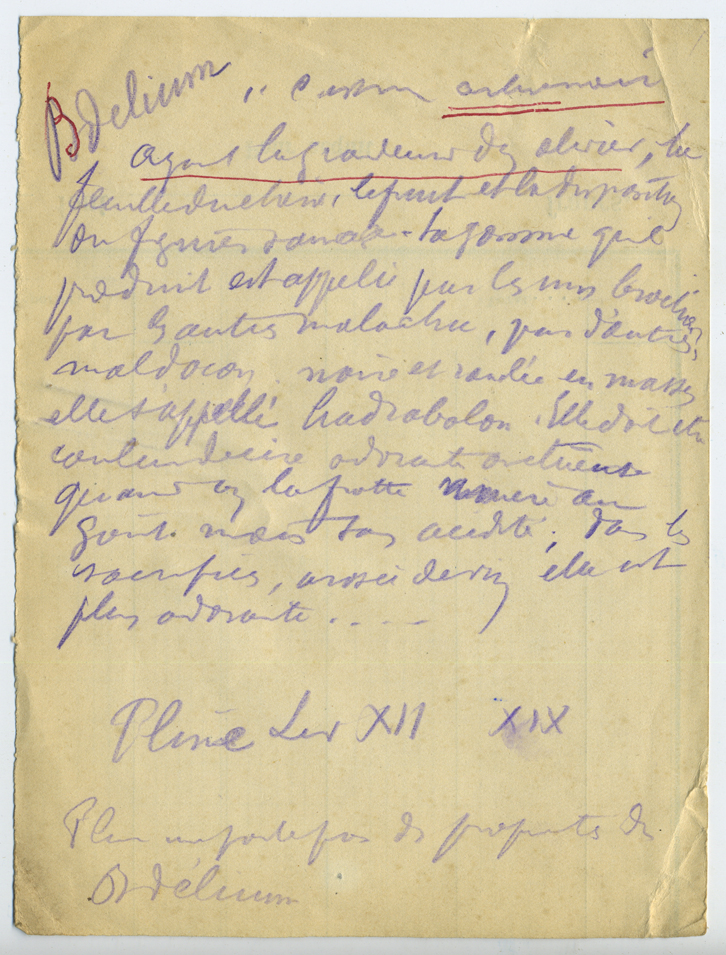 Bdelium " C'est un arbre noir
ayant la grandeur d'un olivier, la
feuille du chêne, le fruit et la disposition
du figuier sauvage - la gomme qu'il
produit est appelée par les uns brochon
par les autres malacha, par d'autres,
maldacon. noire et roulée en masses
elle s'appelle hadrobolon. Elle doit être
odorante onctueuse
quand on la frotte amère au
goût. mais sans acidité; dans les
sacrifices, arosée de vin elle est
plus odorante.....
Pline Liv XII XIX
Pline ne parle pas des propriétés du
Bdélium